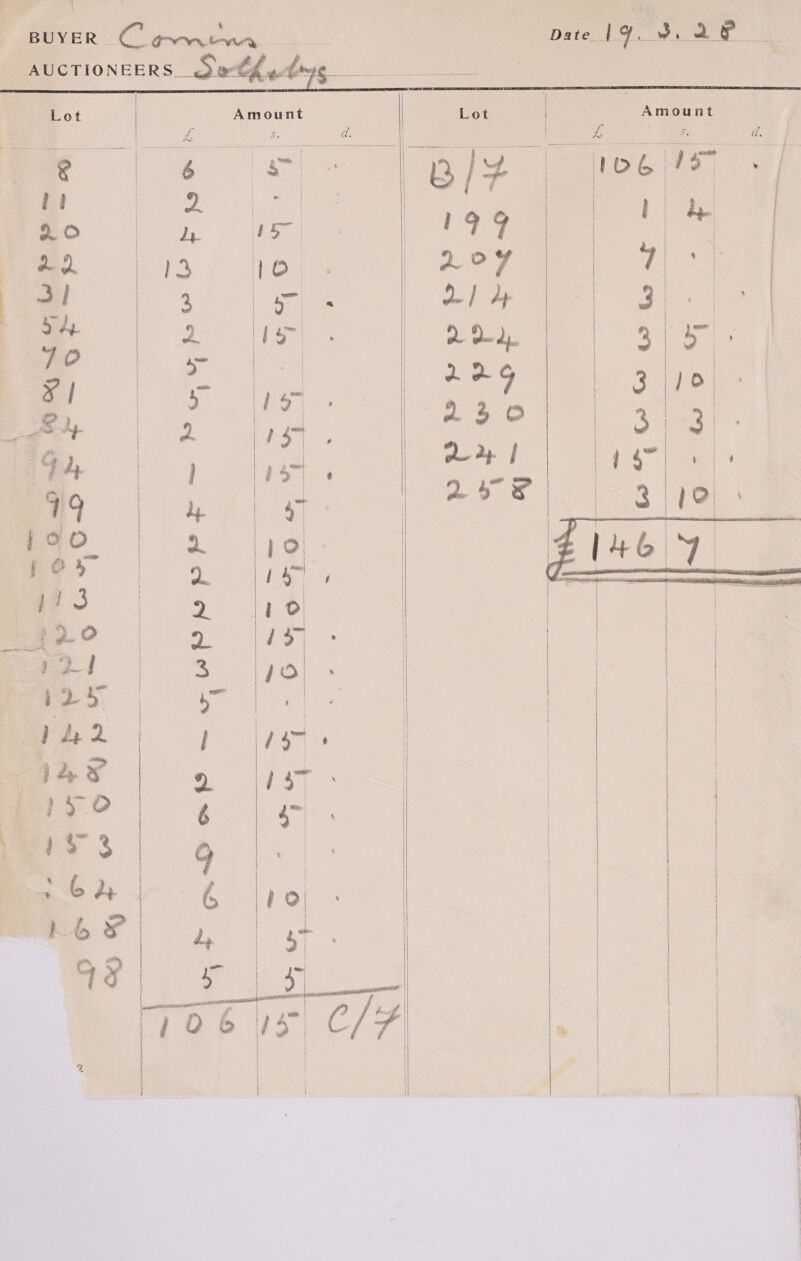 BUYER Comina Date 19. 3. 28
AUCTIONEERS Sothebys
Lot Amount
£ s. d.
8 6 5 "
11 2 - -
20 4 15
22 13 10 .
31 3 5 -
54 2 15 .
70 5
81 5 15 .
84 2 15 .
94 1 15 .
99 4 5
100 2 10
105 2 15 ,
113 2 10
120 2 15 .
121 3 10 .
125 5 . .
142 1 15 .
148 2 15 .
150 6 5 .
153 9 . .
164 6 10 .
168 4 5 .
98 5 5
106 15 C/F
Lot Amount
£ s. d.
B/F 106 15 .
199 1 4
207 7 .
214 3 . .
224 3 5 .
229 3 10
230 3 3 .
241 15 . .
258 3 10 .
£146 7